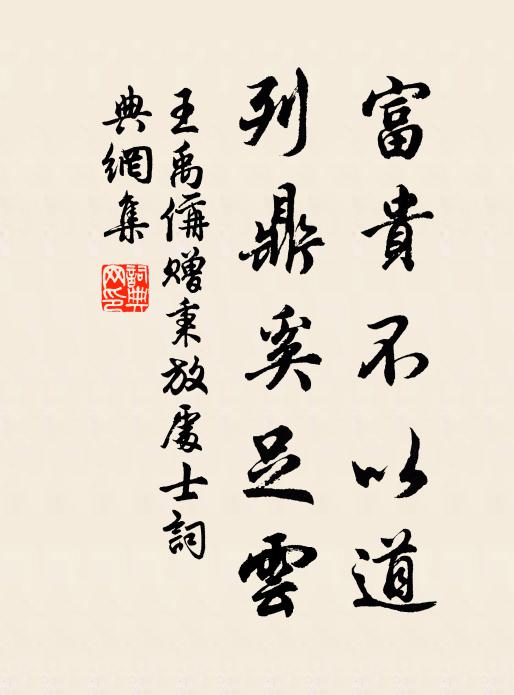 富貴不以道
列鼎奚足雲
王禹偁贈秉放處士詞
典網集
詞典
网印